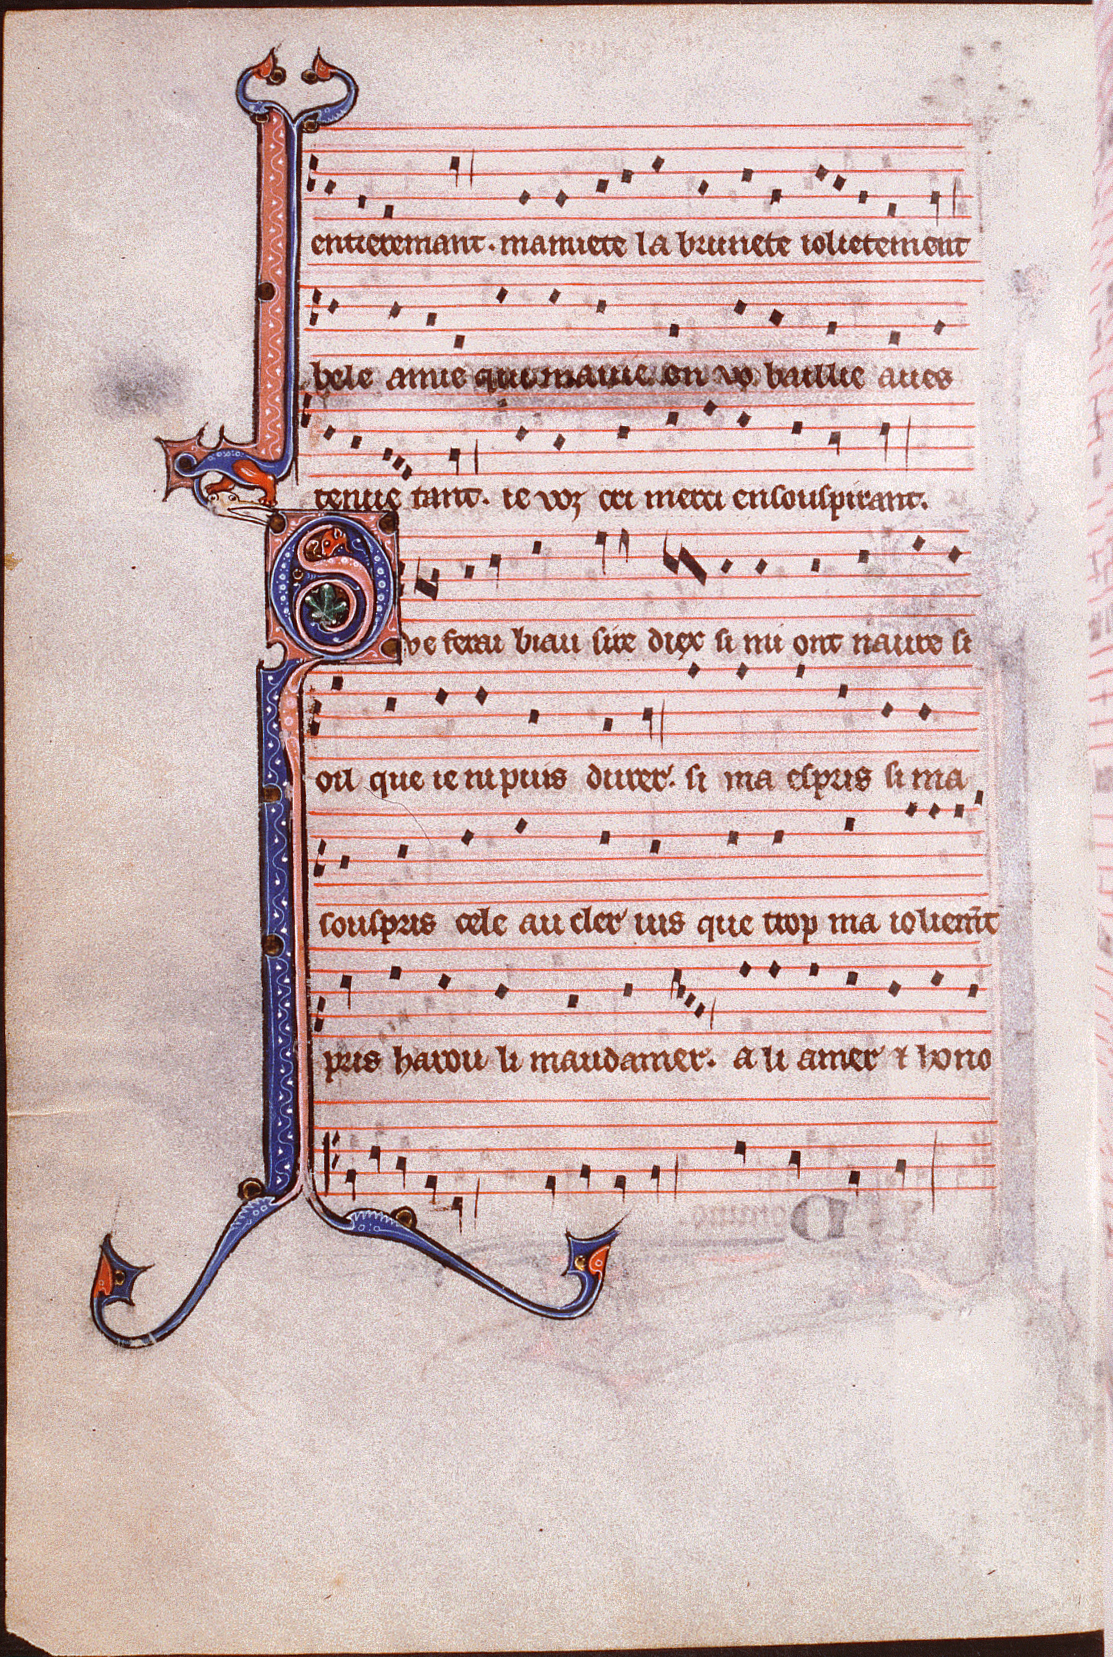 entieremant. mamiete la brunete iolietement
bele amie qui ma uie en vo baillie aues
tenue tant. ie voꝫ cri merci ensouspirant.
Que ferai biau sire diex si mi ont naure si
oil que ie ni puis durer. si ma espris si ma
souspris cele au cler uis que trop ma ioliem̄t
pris harou li maudamer. a li amer ⁊ hono